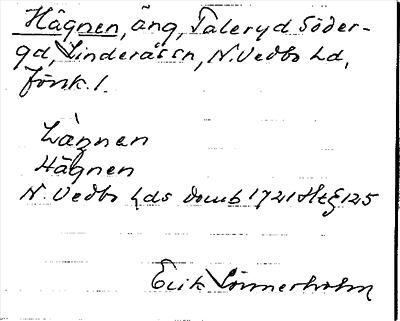 Hägnen, äng, Taleryd Söder-
gd, Linderås sn, N. Vedbo hd,
Jönk. l.
Lägnen
Hägnen
N. Vedbo hds domb 1721 Ht § 125
Erik Lönnerholm